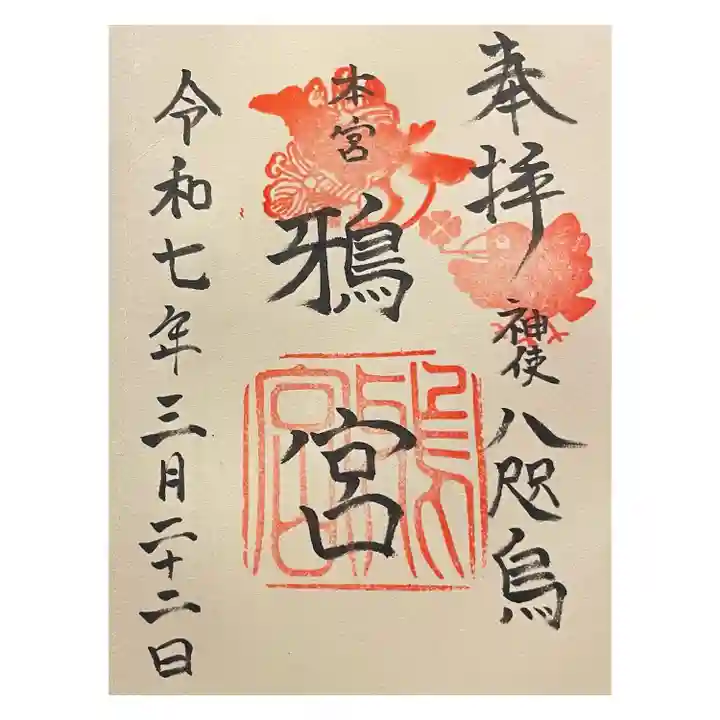 奉拝
神使
八咫烏
本宮
鴉宮
令和七年三月二十二日